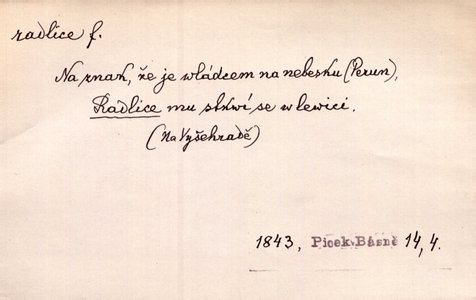 radlice f.
Na znak, že je wládcem na nebesku (Perun),
Radlice mu stkwí se w lewici.
(Na Vyšehradě)
1843, Picek Básně 14, 4.